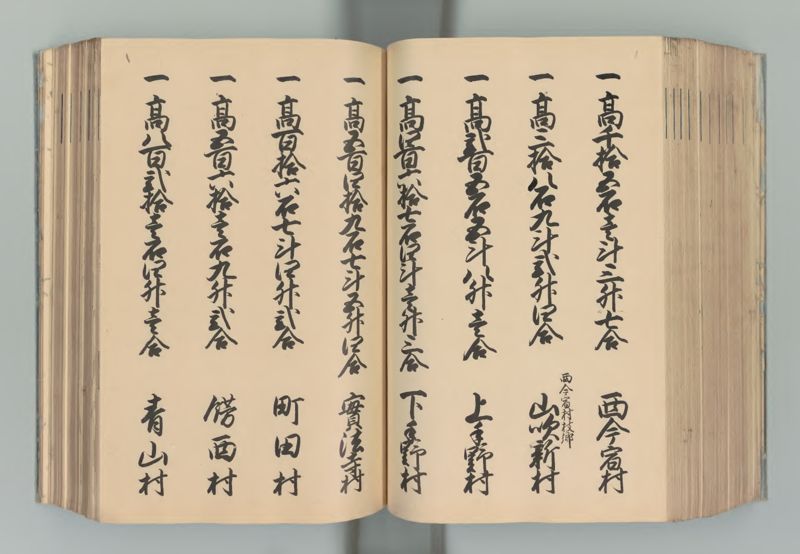 一 高千拾五石壱斗三升七合 西今宿村
一 高三拾八石九斗弐升四合 西今宿村枝郷 山吹新村
一 高弐百五石五斗八升壱合 上手野村
一 高四百六拾七石四斗壱升三合 下手野村
一 高五百四拾九石七斗五升四合 實法寺村
一 高百拾六石七斗四升弐合 町田村
一 高五百六拾壱石九升弐合 餝西村
一 高八百弐拾壱石四升壱合 青山村